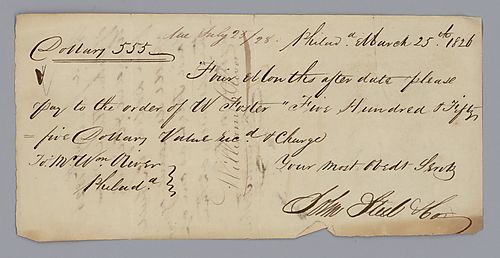 Due July 25/28. Philad.a March 25.th 1826
Dollars 555
Four Months after date please
pay to the order of W Foster " Five Hundred & Fifty
five Dollars Value rec.d & Charge
To Mr Wm. Oliver Your Most Obedt Servts
Philad.a
John Steel & Co